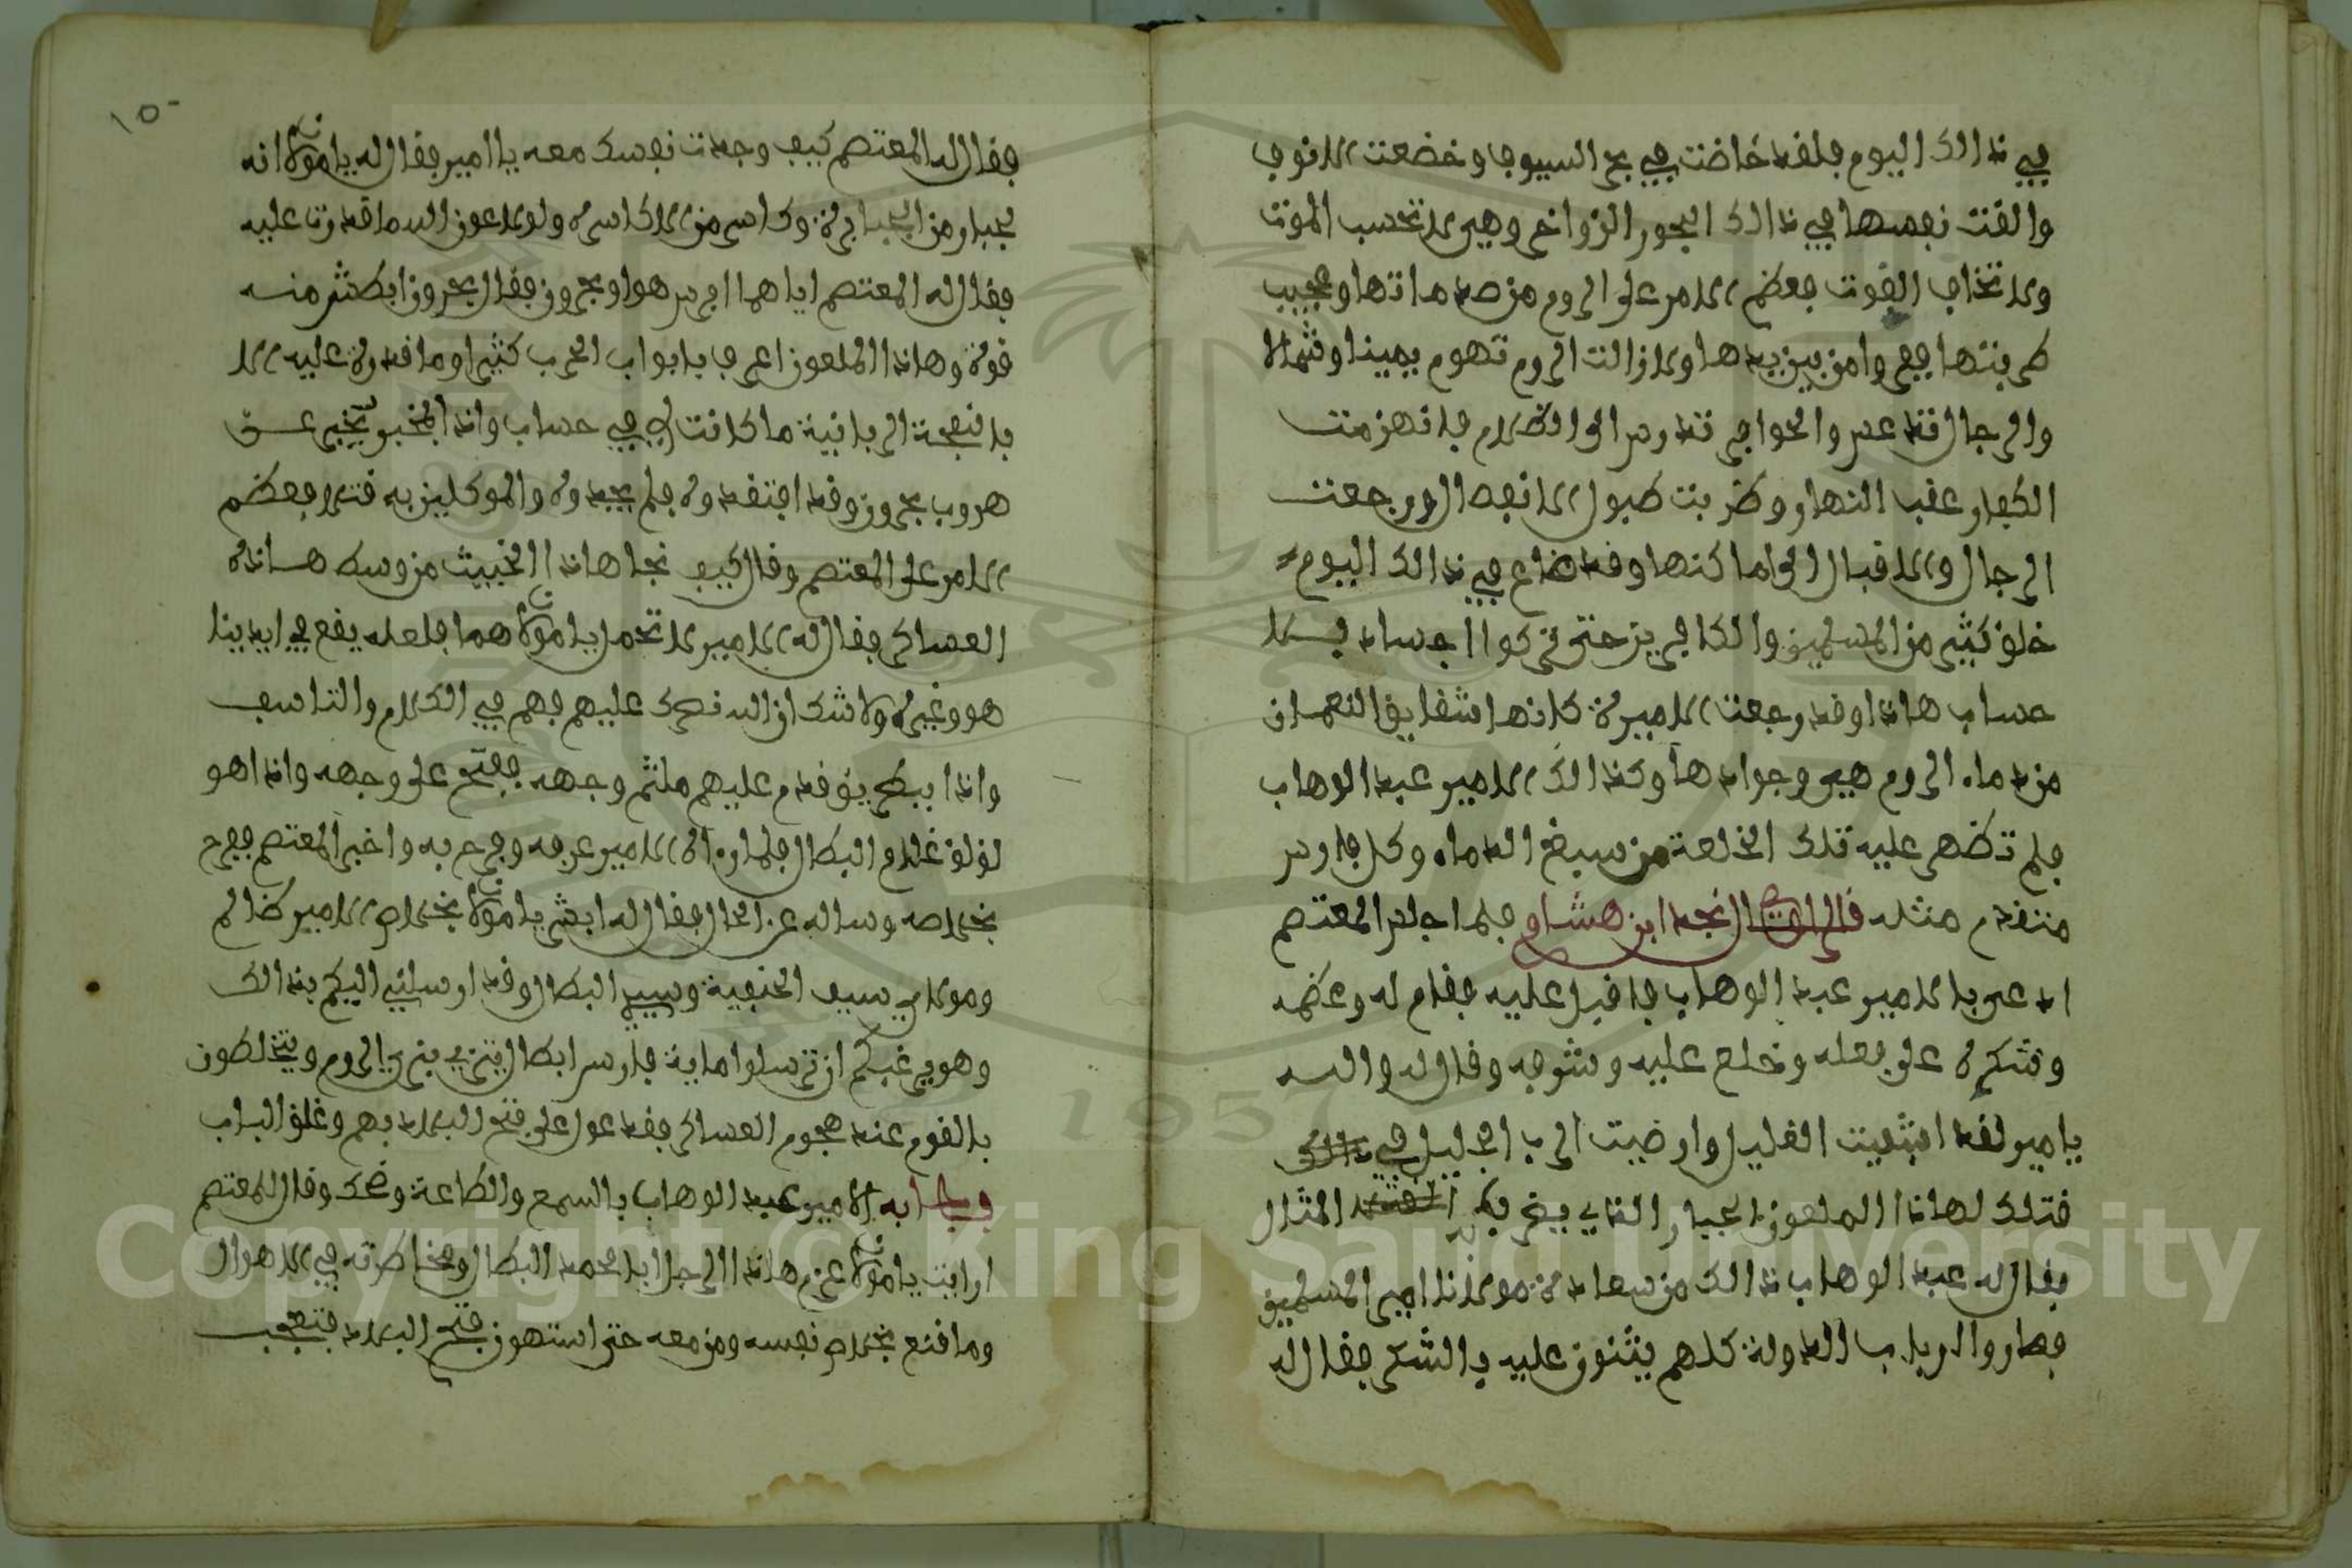 في ذالك اليوم فلقد خاضت في بحر السيوف وخضعت الانوف
والقت نفسها في ذالك البحور الزواخر وهي لا تحسب الموت
ولا تخاف الفوت فعظم الامر على الروم من صدماتها وعجيب
ضربتها ففروا من بين يدها ولا زالت الروم تهوم يمينا وشمالا
والرجال قد عبس والحوافر تدرس الى الظلام فانهزمت
الكفار عقب النهار وضربت طبول الانفصال ورجعت
الرجال والاقبال الى اماكنها وقد ضاع في ذالك اليوم
خلق كثير من المسلمين والكافرين حتى تركوا اجساد بلا
حساب هاذا وقد رجعت الاميرة كانها شقايق النعمان
من دماء الروم هي وجوادها وكذالك الامير عبد الوهاب
فلم تظهر عليه تلك الخلعة من سيض الدماء وكل فارس
متقدم مثله قال الراوي نجد ابن هشام فلما جلس المعتصم
ادعى بالامير عبد الوهاب فاقبل عليه فقام له وعظمه
وشكره على فعله وخلع عليه وشرفه وقال له والله
يامير لقد اشفيت الغليل وارضيت الرب الجليل في ذالك
قتلك لهاذا الملعون الجبار الذي يضرب به المثال
فقال له عبد الوهاب ذالك من سعادة مولانا امير المسلمين
فصاروا ارباب الدولة كلهم يثنون عليه بالشكر فقال له
١٥٠
فقال له المعتصم كيف وجدت نفسك معه يا امير فقال له يا مولانا انه
جبار من الجبابرة وكاسر من الاكاسره ولولا عون الله ما قدرت عليه
فقال له المعتصم اياهما افرس هوا وبحرون فقال بحرون ابطش منه
قوة وهاذا الملعون اعرف بابواب الحرب كثيرا وما قدرة عليه الا
بالنفحة الربانية ما كانت لي في حساب واذا بالمخبر يخبر عن
هروب بحرون وقد افتقدوه فلم يجدوه والموكلين به قتلا فعظم
الامر على المعتصم وقال كيف نجا هاذا الخبيث من وسط هاذه
العساكر فقال له الامير لا تحمل يا مولانا هما فلعله يقع في ايدينا
هو وغيره ولا شك ان الله ضحك عليهم فهم في الكلام والتاسف
واذا ببطريق قدم عليهم ملثم وجهه ففتح على وجهه واذا هو
لؤلؤ غلام البطال فلما راه الامير عرفه وفرح به واخبر المعتصم ففرح
بخلاصه وساله عن الحال فقال له ابشر يا مولانا بخلاص الامير ظالم
ومولاي سيف الحنفية وسيدي البطال وقد ارسلني اليكم بذالك
وهو يرغبكم ان ترسلوا ماية فارس ابطال يتزيون بزي الروم ويختلطون
بالقوم عند هجوم العساكر فقد عول على فتح البلاد بهم وغلق الباب
فاجابه الامير عبد الوهاب بالسمع والطاعة وضحك وقال للمعتصم
ارايت يا مولانا عزم هاذا الرجل ابا محمد البطال ومخاطرته في الاهوال
وما قنع بخلاص نفسه ومن معه حتى استهون فتح البلاد فتعجب
Copyright © King Saud University
1957